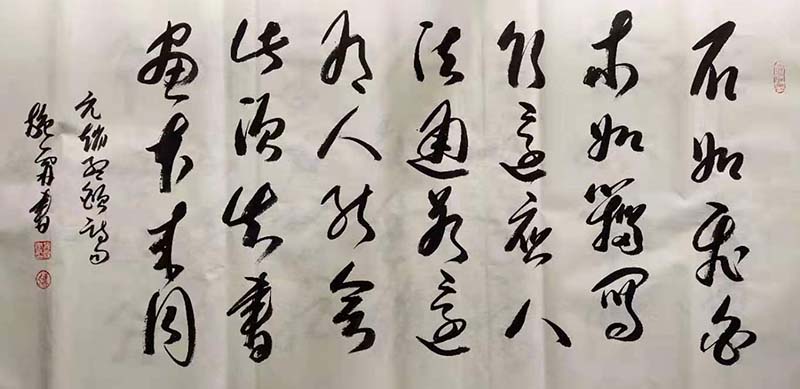 石如飛白
木如籀寫
竹還應八
法通若還
有人能會
此須知書
畫本來同
元趙孟頫詩句
書